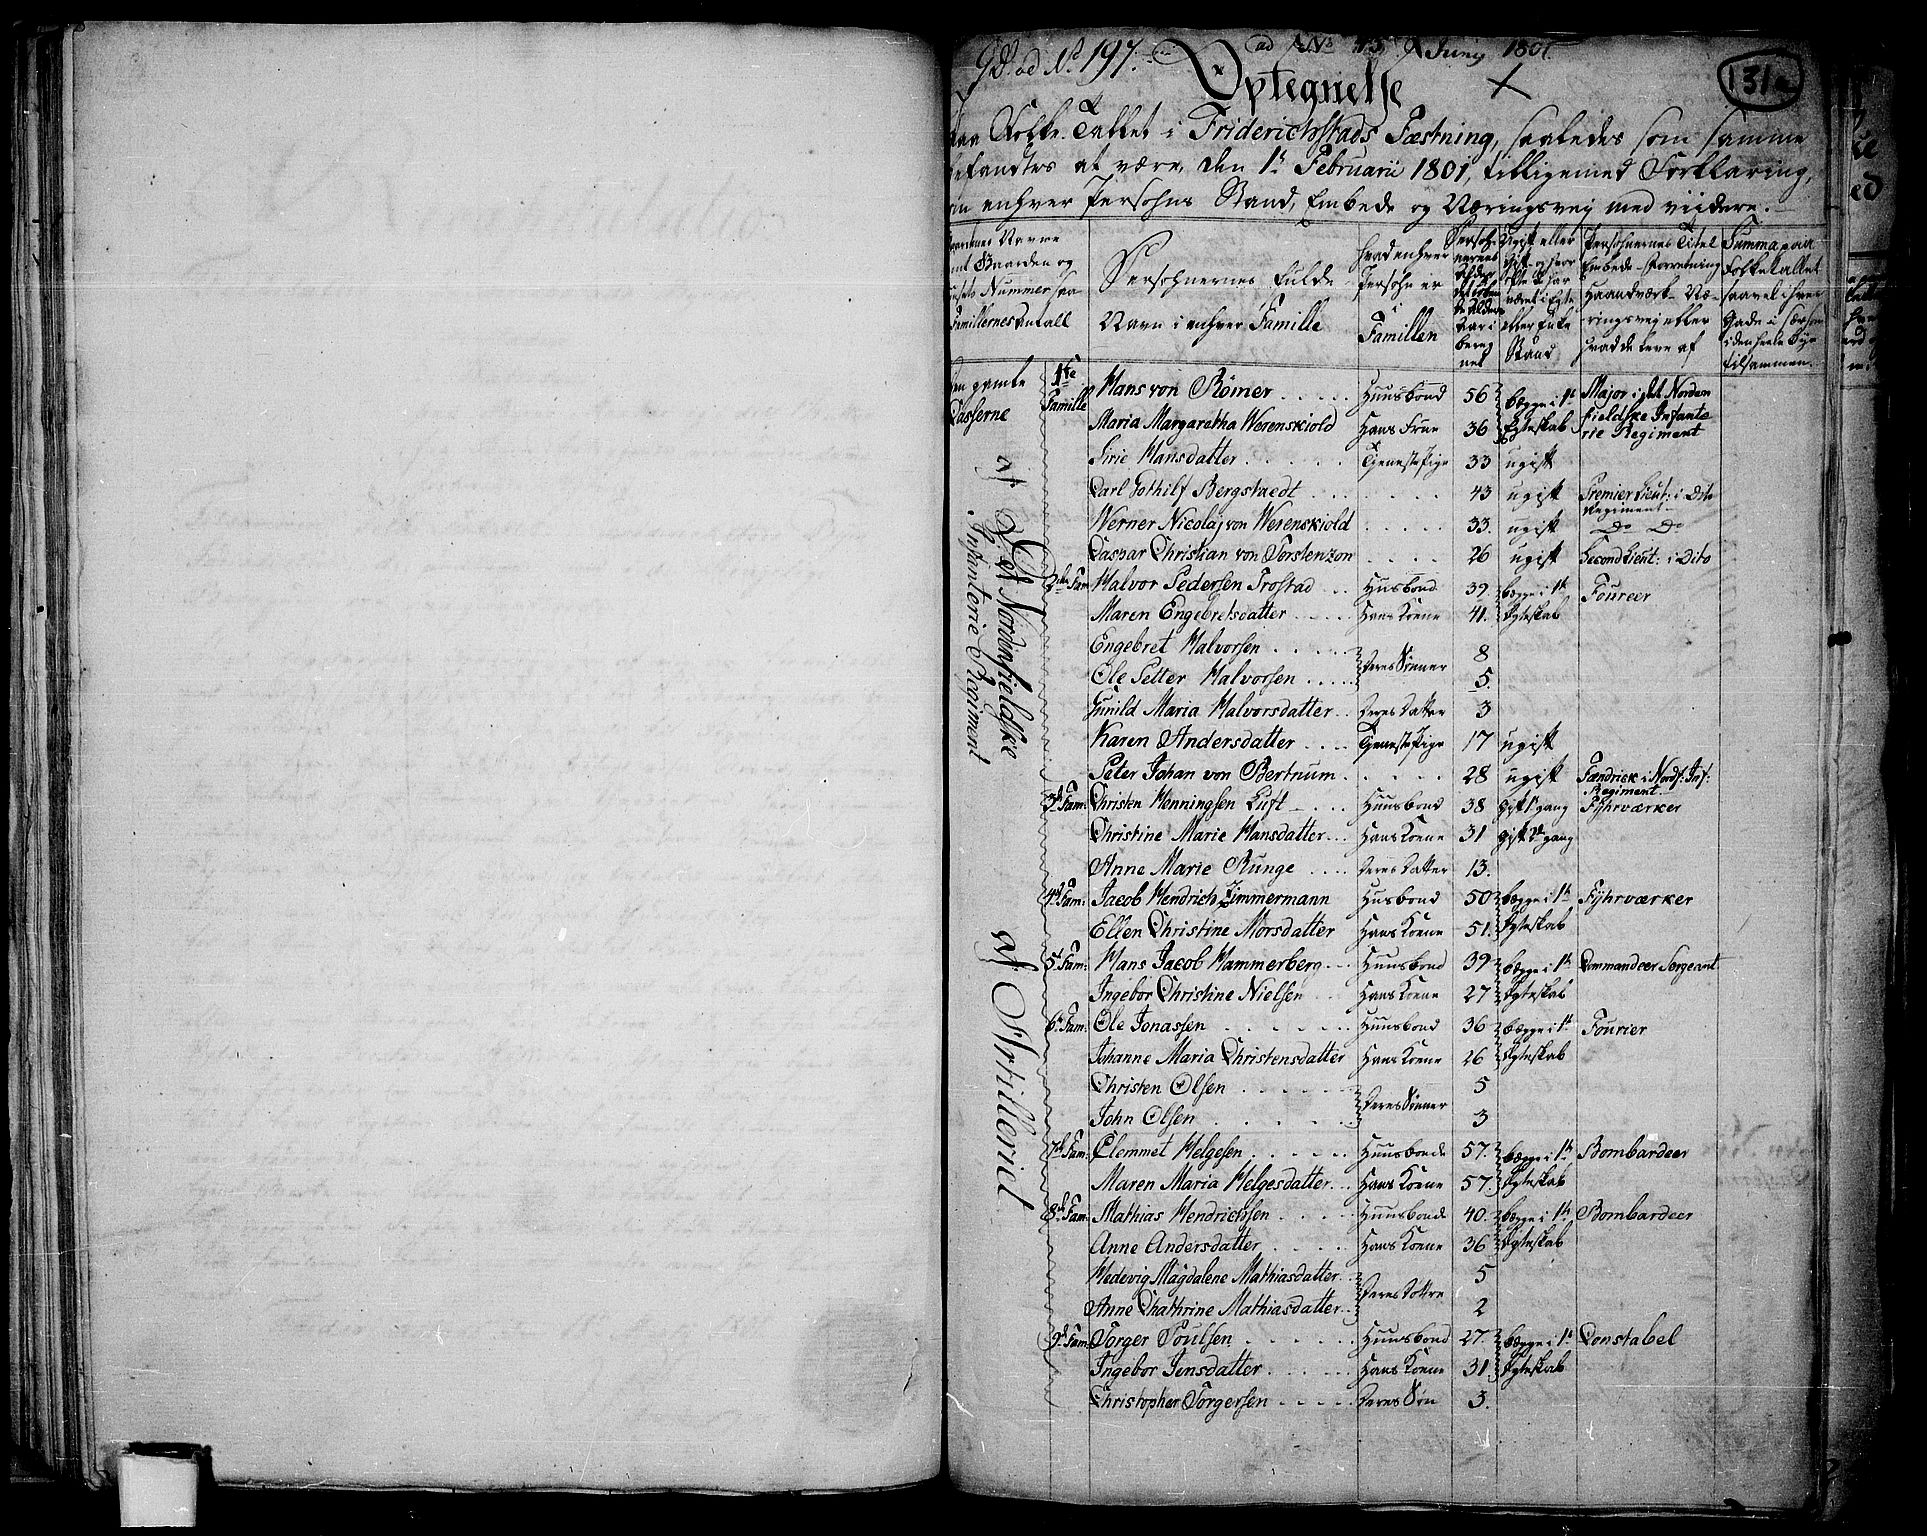 ad No 197.
Junij 1801.
131a
Optegnelse
paa Folke-Tallet i Friderichstads Fæstning, saaledes som samme
befandtes at være, den 1ste Februarii 1801, tilligemed Forklaring,
om enhver Persohns Stand, Embede og Næringsvej med viidere.
Gaardenes Navne samt Gaarden og Husets Nummer saa Familiernes Antall
Persohnernes fulde Navn i enhver Familie
Hvad enhver Persohn er i Famillen
Persohnernes Titel Embede-Forretning Haandværk-Næringsvej eller hvad de leve af
Summa paa Folketallet saavel i hver Gade i sær som i den heele Bye tilsammen.
Den gamle Casserne
af Det Nordenfieldske Infanterie Regiment
1te Famille Hans von Römer Huusbond 56 begge i 1te Egteskab Major i det Nordenfieldske Infanterie Regiment
Maria Margaretha Werenskiold Hans Frue 36
Sirie Hansdatter Tjenestepige 33 ugift
Carl Gothilf Bergstaedt 43 ugift Premier Lieut: i Dito Regiment
Werner Nicolaj von Werenskiold 33. ugift Do Do
Caspar Christian von Torstenzon 26 ugift Second Lieut: i Dito
2den Fam Halvor Pedersen Trostad Husbond 39. begge i 1te Egteskab Foureer
Maren Engebretsdatter Hans Koene 41.
Engebret Halvorsen Deres Sønner 8
Ole Petter Halvorsen 5.
Gunild Maria Halvorsdatter Deres Datter 3
Karen Andersdatter Tjenestepige 17 ugift
Peter Johan von Bertnum 28 ugift Fændrick i Nordf: Inf: Regiment
af Artilleriet
3de Fam: Christen Henningsen Luft Huusbond 38 gift 1te gang Fyhrværker
Christine Marie Hansdatter Hans Koene 31 gift 2de gang
Anne Marie Runge Deres Datter 13.
4de Fam: Jacob Hendrich Zimmermann Husbond 50 begge i 1te Egteskab Fyhrværker
Ellen Christine Morsdatter Hans Koene 51.
5te Fam: Hans Jacob Hammerberg Huusbond 39 begge i 1te Egteskab Commandeer Sergeant
Ingebor Christine Nielsen Hans Koene 27
6te Fam: Ole Jonassen Huusbond 36 begge i 1te Egteskab Fourier
Johanne Maria Christensdatter Hans Koene 26
Christen Olsen Deres Sønner 5
John Olsen 3
7de Fam: Clemmet Helgesen Huusbonde 57. begge i 1te Egteskab Bombardeer
Maren Maria Helgesdatter Hans Koene 57.
8de Fam: Mathias Hendrichsen Huusbonde 40. begge i 1te Egteskab Bombardeer
Anne Andersdatter Hans Koene 36
Hedevig Magdalene Mathiasdatter Deres Døttre 5
Anne Chathrine Mathiasdatter 2
9de Fam: Torger Poulsen Huusbond 27. begge i 1te Egteskab Constabel
Ingebor Jensdatter Hans Koene 31
Christopher Torgersen Deres Søn 3.